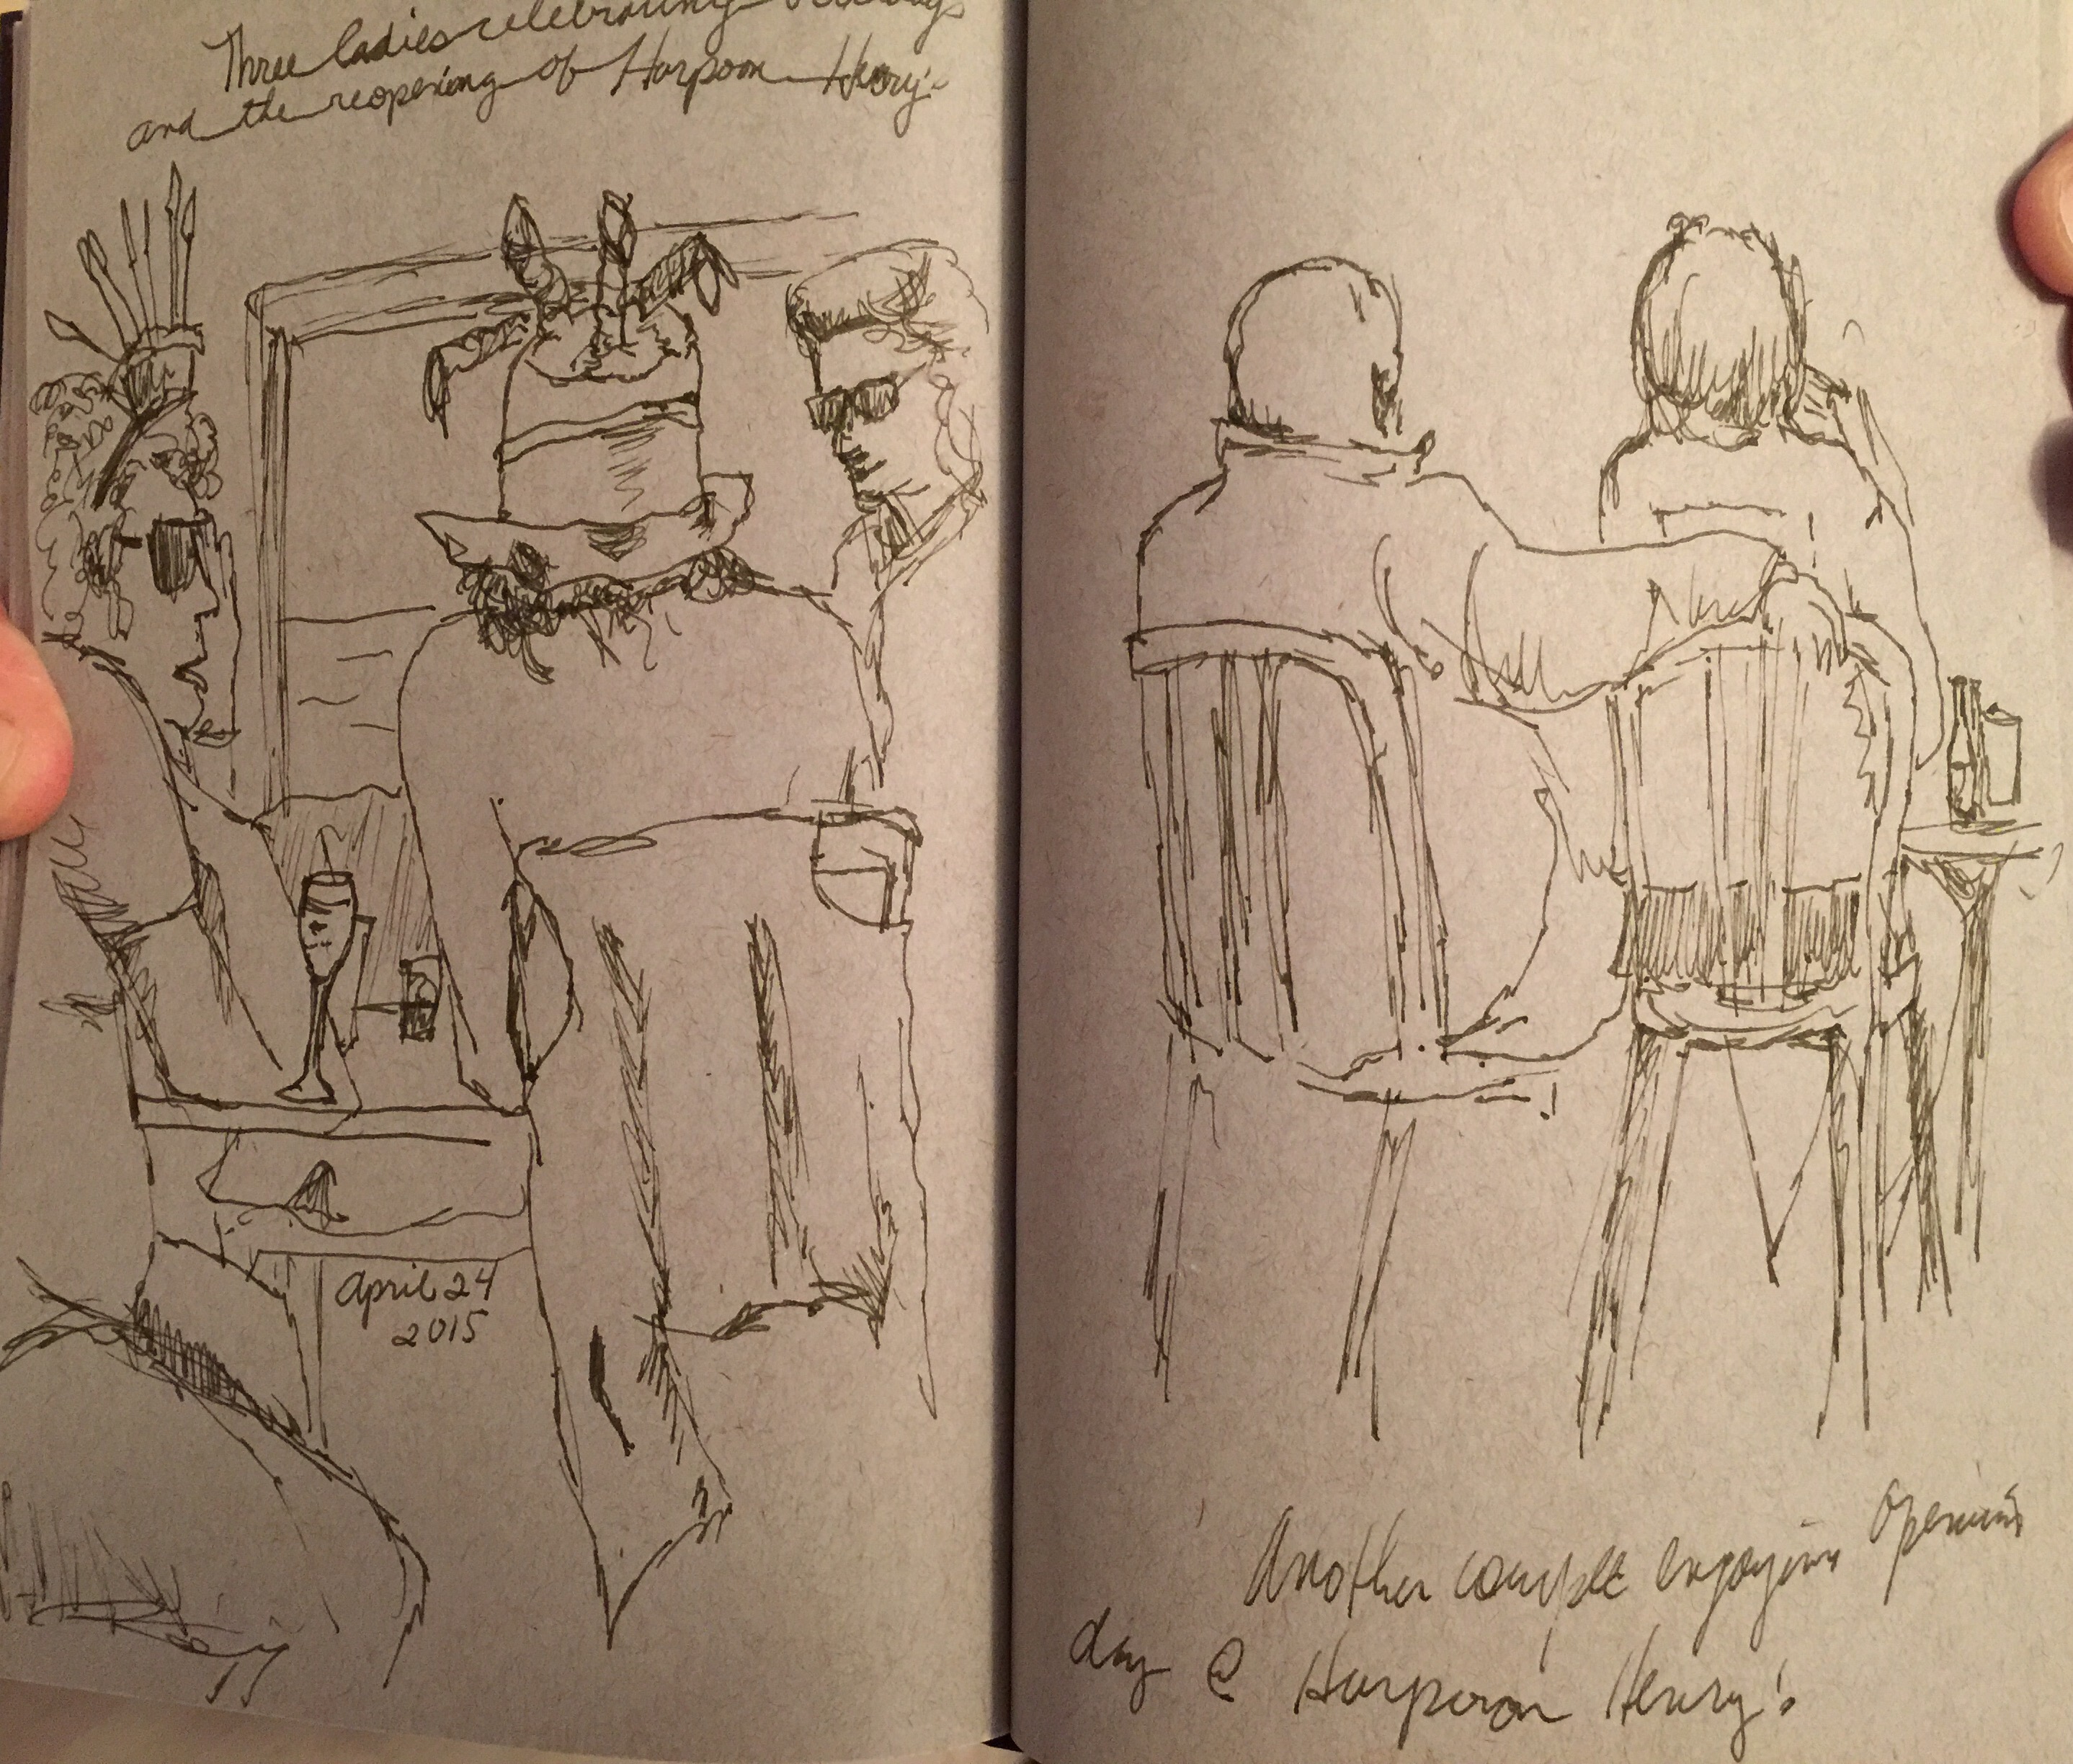 Three ladies celebrating birthdays
and the reopening of Harpoon Henry's
April 24
2015
Another couple enjoying opening
day @ Harpoon Henry's